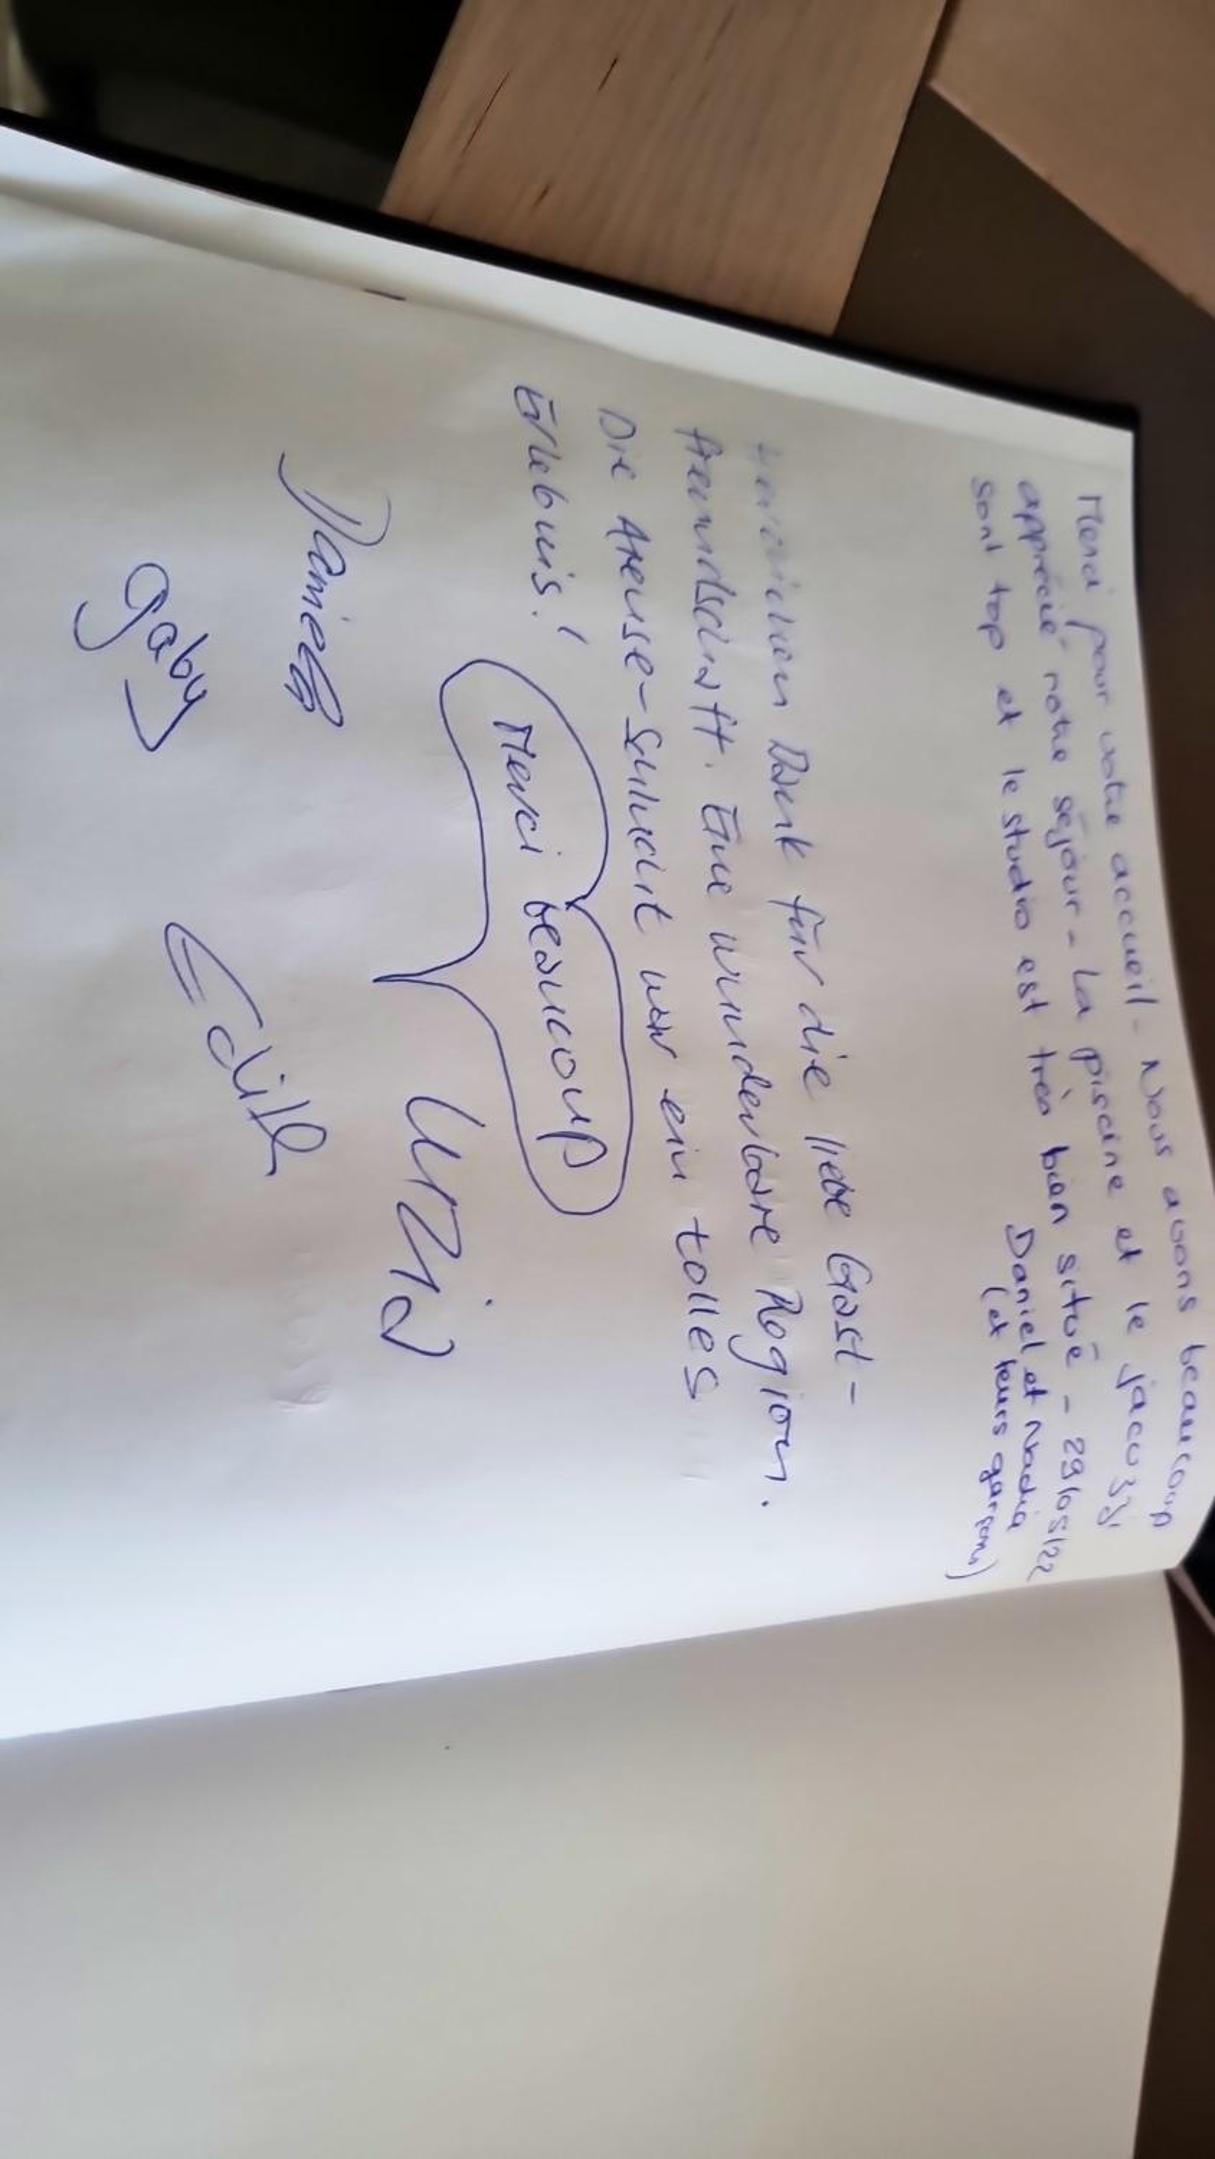 Merci pour votre accueil - Nous avons beaucoup
apprécié notre séjour - La piscine et le jacuzzi
sont top et le studio est très bien situé - 29/05/22
Daniel et Nadia
(et leurs garçons)
Herzlichen Dank für die liebe Gast-
freundschaft. Eine wunderbare Region.
Die Areuse-Schlucht war ein tolles
Erlebnis!
Merci beaucoup
Daniela
Gaby
Edith